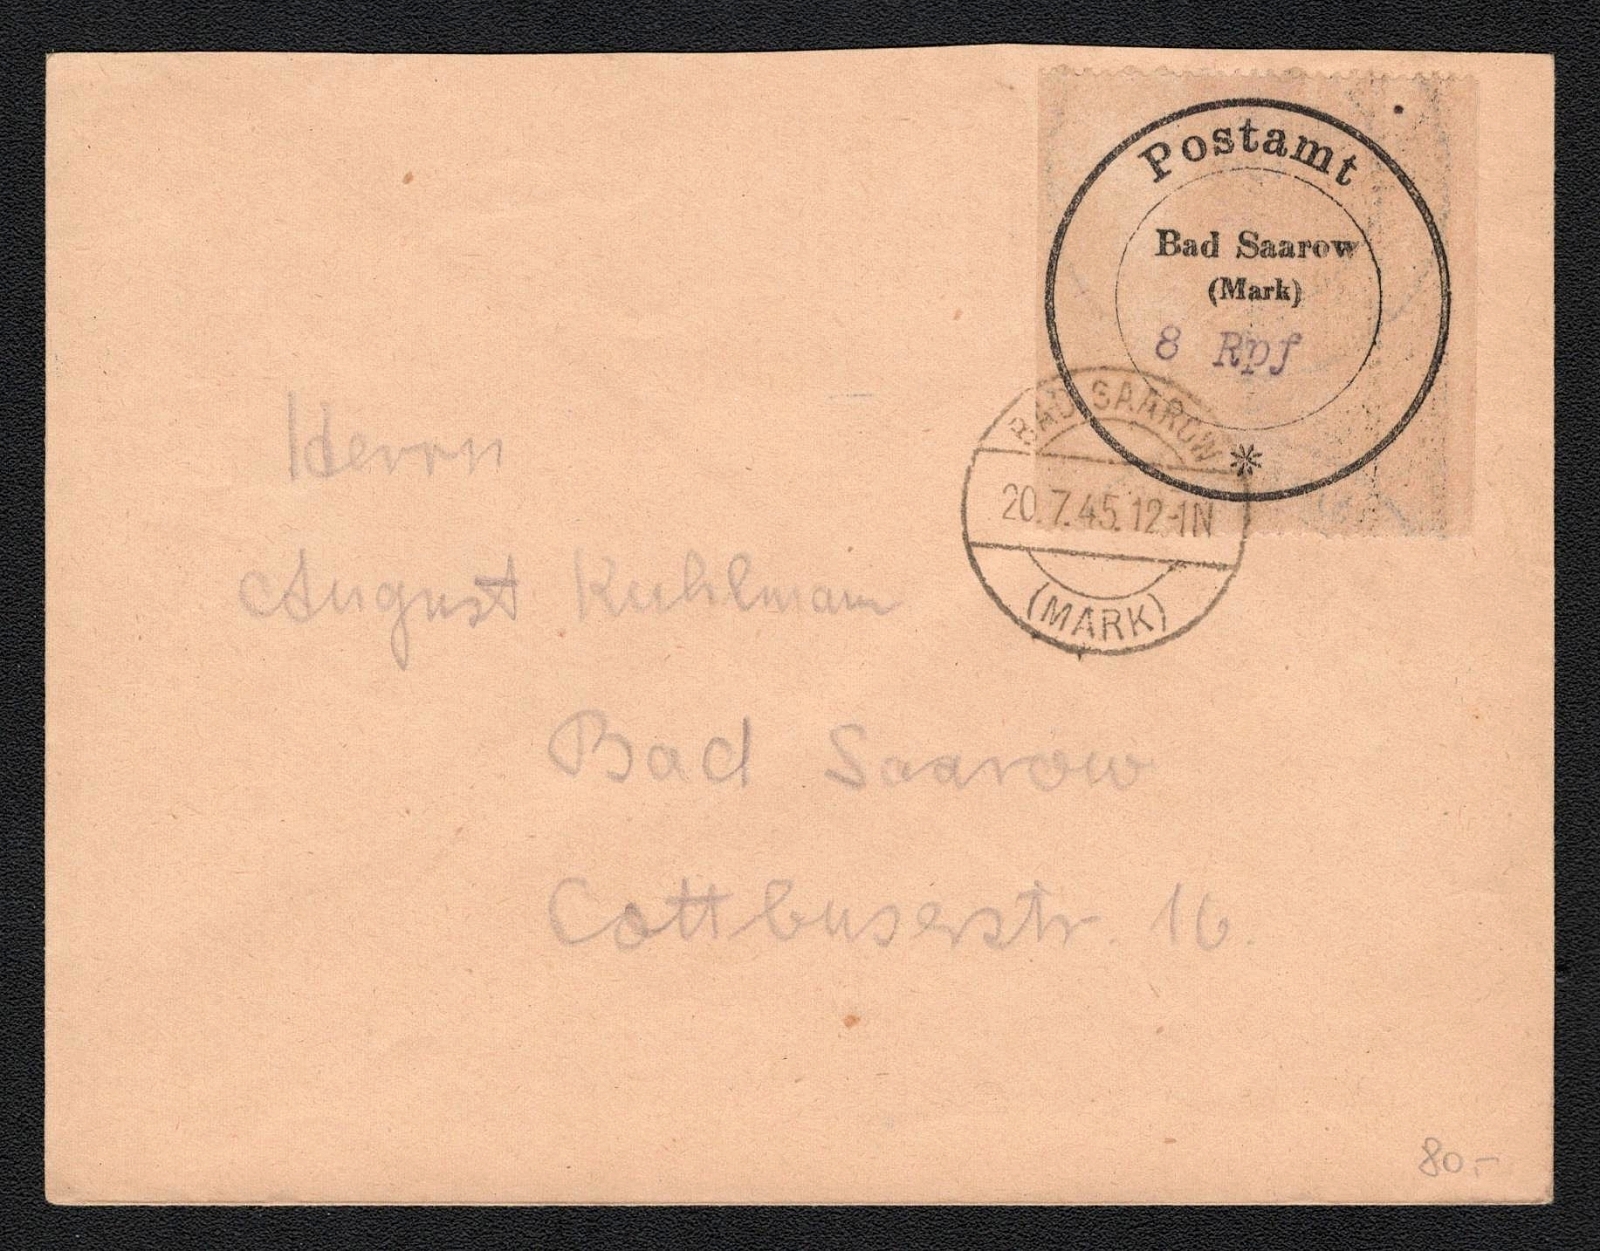 Postamt
Bad Saarow
(Mark)
8 Rpf
*
BAD SAAROW
20.7.45.12-1N
(MARK)
Herrn
August Kuhlmann
Bad Saarow
Cottbuserstr. 16.
80.-